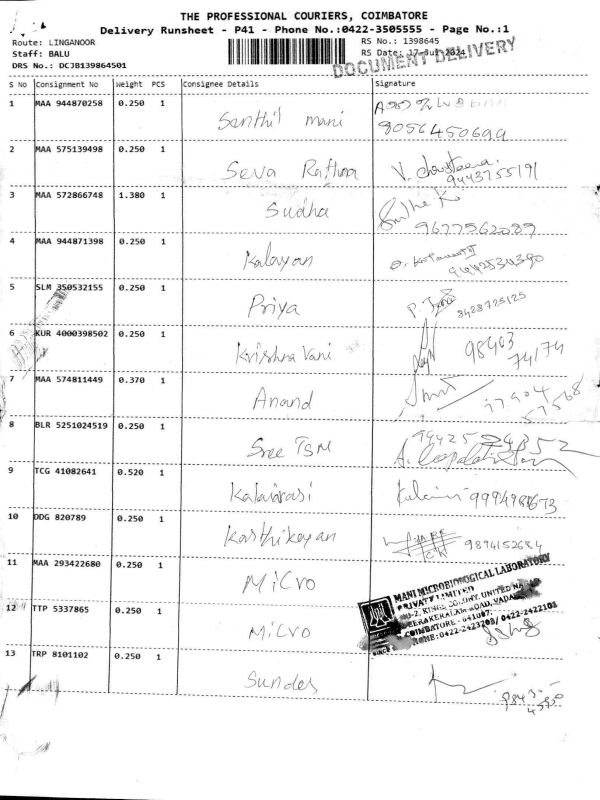 THE PROFESSIONAL COURIERS, COIMBATORE
Delivery Runsheet - P41 - Phone No.:0422-3505555 - Page No.:1
Route: LINGANOOR RS No.: 1398645
Staff: BALU RS Date: 17-Jul-2024
DRS No.: DCJB139864501 DOCUMENT DELIVERY
S No Consignment No Weight PCS Consignee Details Signature
1 MAA 944870258 0.250 1 Senthil mani
8056450699
2 MAA 575139498 0.250 1 Seva Rathna V.
9443755191
3 MAA 572866748 1.380 1 Sudha Sudha K
9677562089
4 MAA 944871398 0.250 1 Kalayan
5 SLM 350532155 0.250 1 Priya P.
8428725125
6 KUR 4000398502 0.250 1 Krishna Vani 98403
74174
7 MAA 574811449 0.370 1 Anand 17904
57568
8 BLR 5251024519 0.250 1 Sree TSM
9 TCG 41082641 0.520 1 Kalaiarasi
10 DDG 820789 0.250 1 Karthikeyan 9894152684
11 MAA 293422680 0.250 1 Micro
MANI MICROBIOLOGICAL LABORATORY
PRIVATE LIMITED
12 TTP 5337865 0.250 1 Micro
COIMBATORE - 641007.
0422-2423203/ 0422-2422103
13 TRP 8101102 0.250 1 Sunder